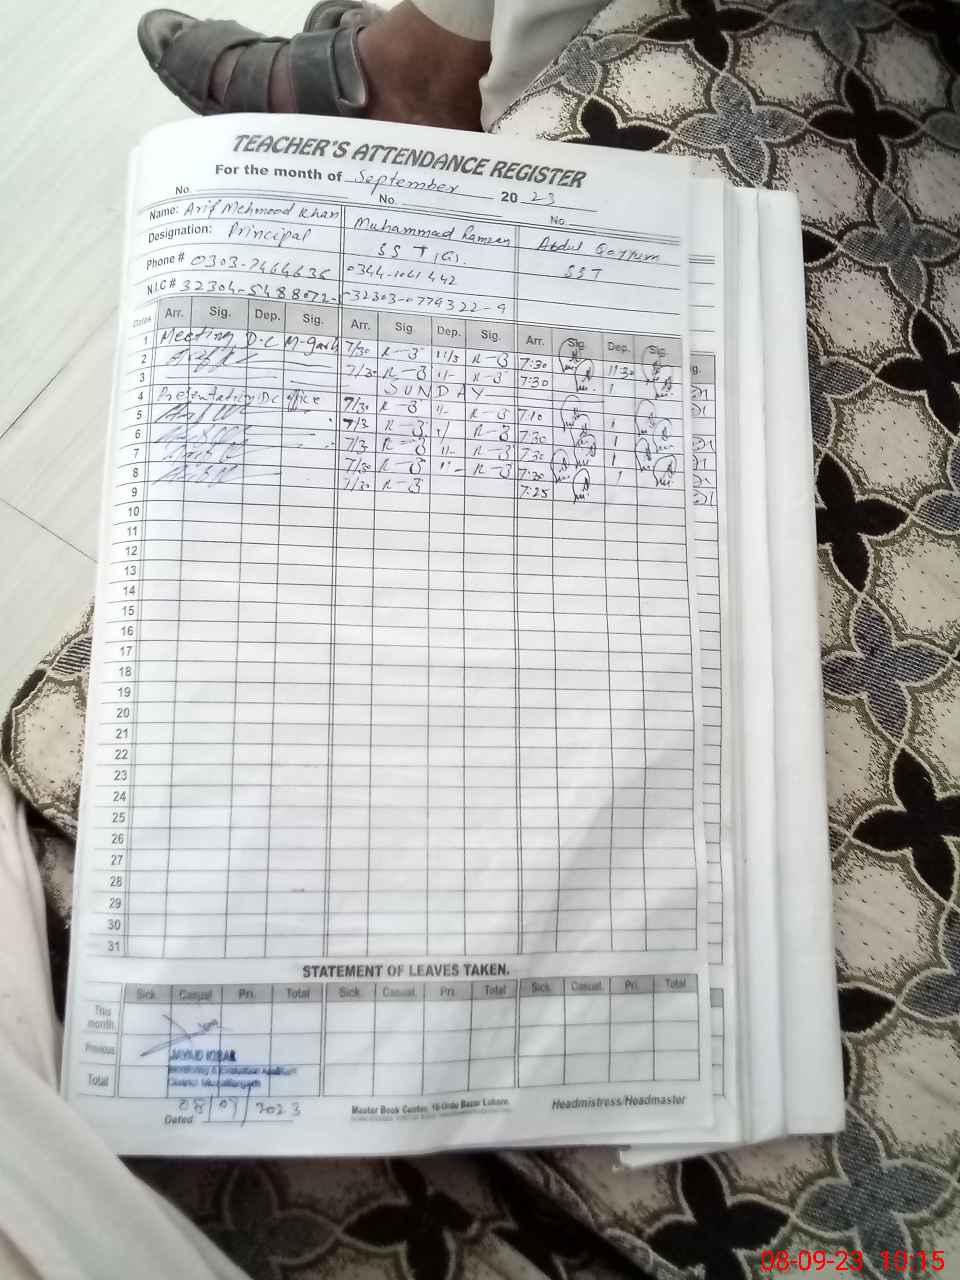 TEACHER'S ATTENDANCE REGISTER
For the month of September 2023
No. No. No.
Name: Arif Mehmood Khan Muhammad Ramzan Abdul Qayyum
Designation: Principal SST (G). SST
Phone # 0303-7464636 0344-1061442
N.I.C # 32304-5488072- 32303-0779322-9
Dates Arr. Sig. Dep. Sig. Arr. Sig Dep. Sig. Arr. Sig. Dep. Sig.
1 Meeting D.C M-garh 7/30 11/3 7:30 11:30
2 7/30 11- 7:30 1
3 SUNDAY
4 D.C office 7/30 11- 7:10 1
5 7/3 7:30 1
6 7/3 11- 7:30 1
7 7/30 11- 7:30 1
8 7/30 7:25
9
10
11
12
13
14
15
16
17
18
19
20
21
22
23
24
25
26
27
28
29
30
31
STATEMENT OF LEAVES TAKEN.
Sick. Casual. Pri. Total Sick. Casual. Pri. Total Sick. Casual. Pri. Total
This month.
Previous
Total
JAVAID IQBAL
Monitoring & Evaluation Assistant
District Muzaffargarh
08/09/2023
Dated
Master Book Center, 16-Urdu Bazar Lahore.
Headmistress/Headmaster
08-09-23 10:15